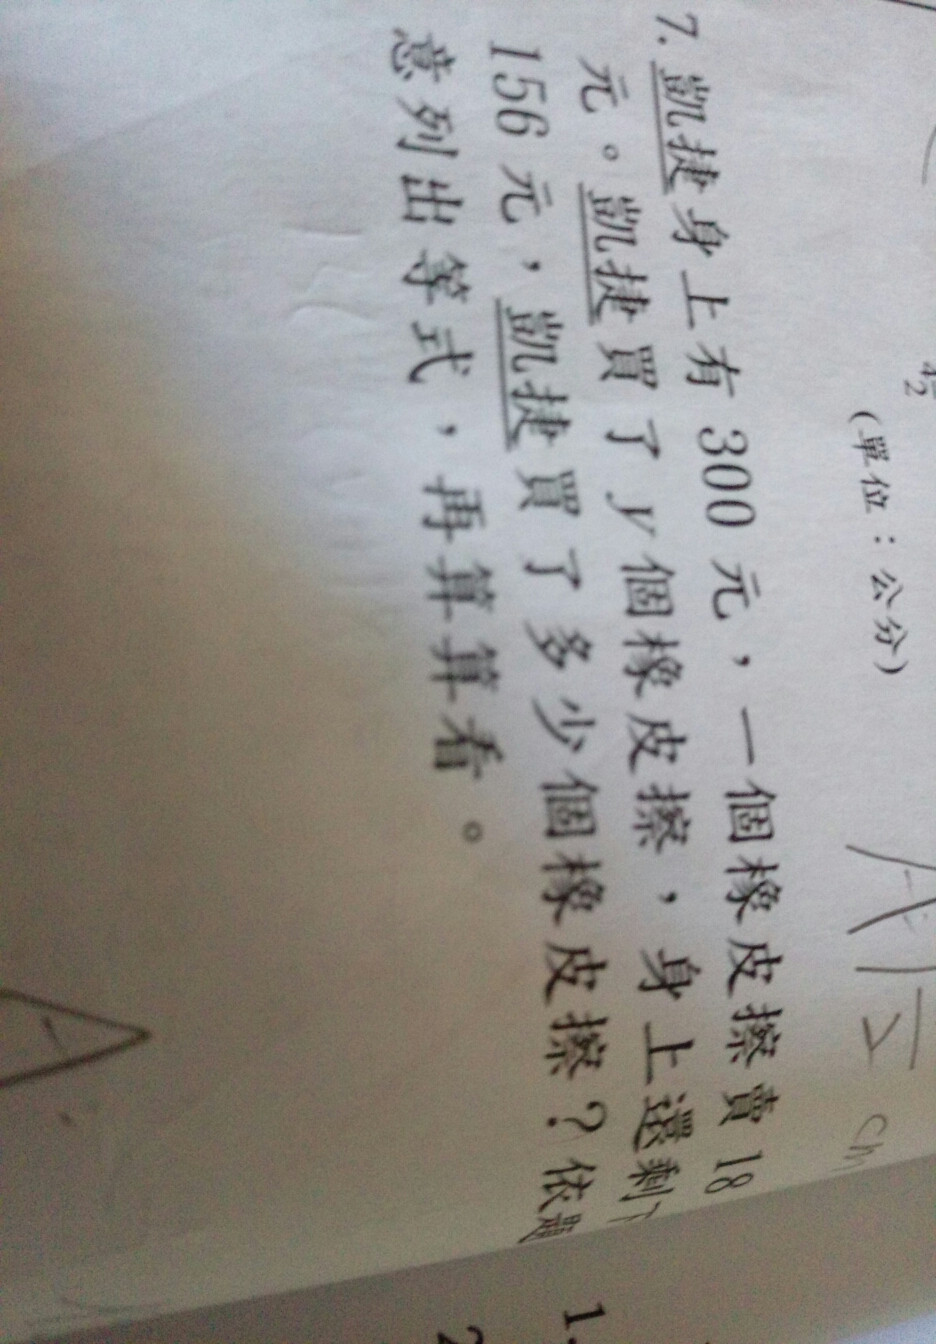 2
(單位：公分)
cm
7. 凱捷身上有 300 元，一個橡皮擦賣 18
元。凱捷買了 y 個橡皮擦，身上還剩下
156 元，凱捷買了多少個橡皮擦？依題
意列出等式，再算算看。
1.
2